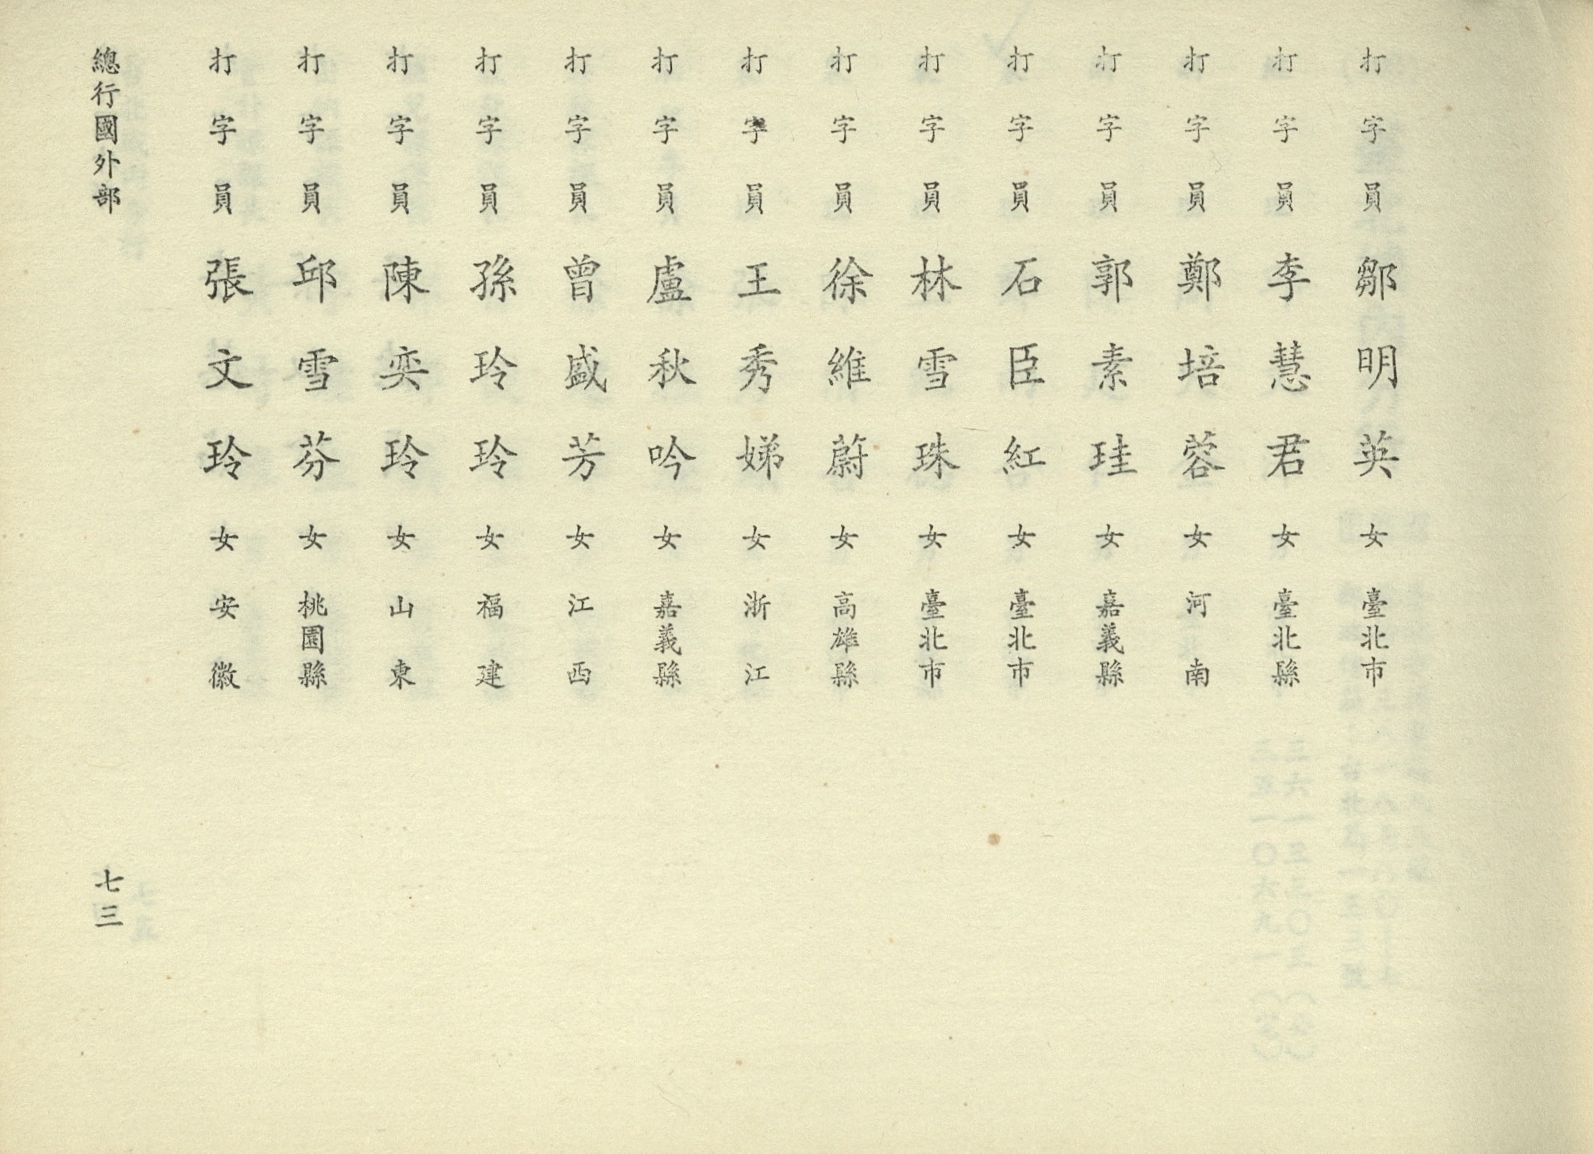 打字員 鄒明英 女 臺北市
打字員 李慧君 女 臺北縣
打字員 鄭培蓉 女 河南
打字員 郭素珪 女 嘉義縣
打字員 石臣紅 女 臺北市
打字員 林雪珠 女 臺北市
打字員 徐維蔚 女 高雄縣
打字員 王秀娣 女 浙江
打字員 盧秋吟 女 嘉義縣
打字員 曾盛芳 女 江西
打字員 孫玲玲 女 福建
打字員 陳奕玲 女 山東
打字員 邱雪芬 女 桃園縣
打字員 張文玲 女 安徽
總行國外部
七三